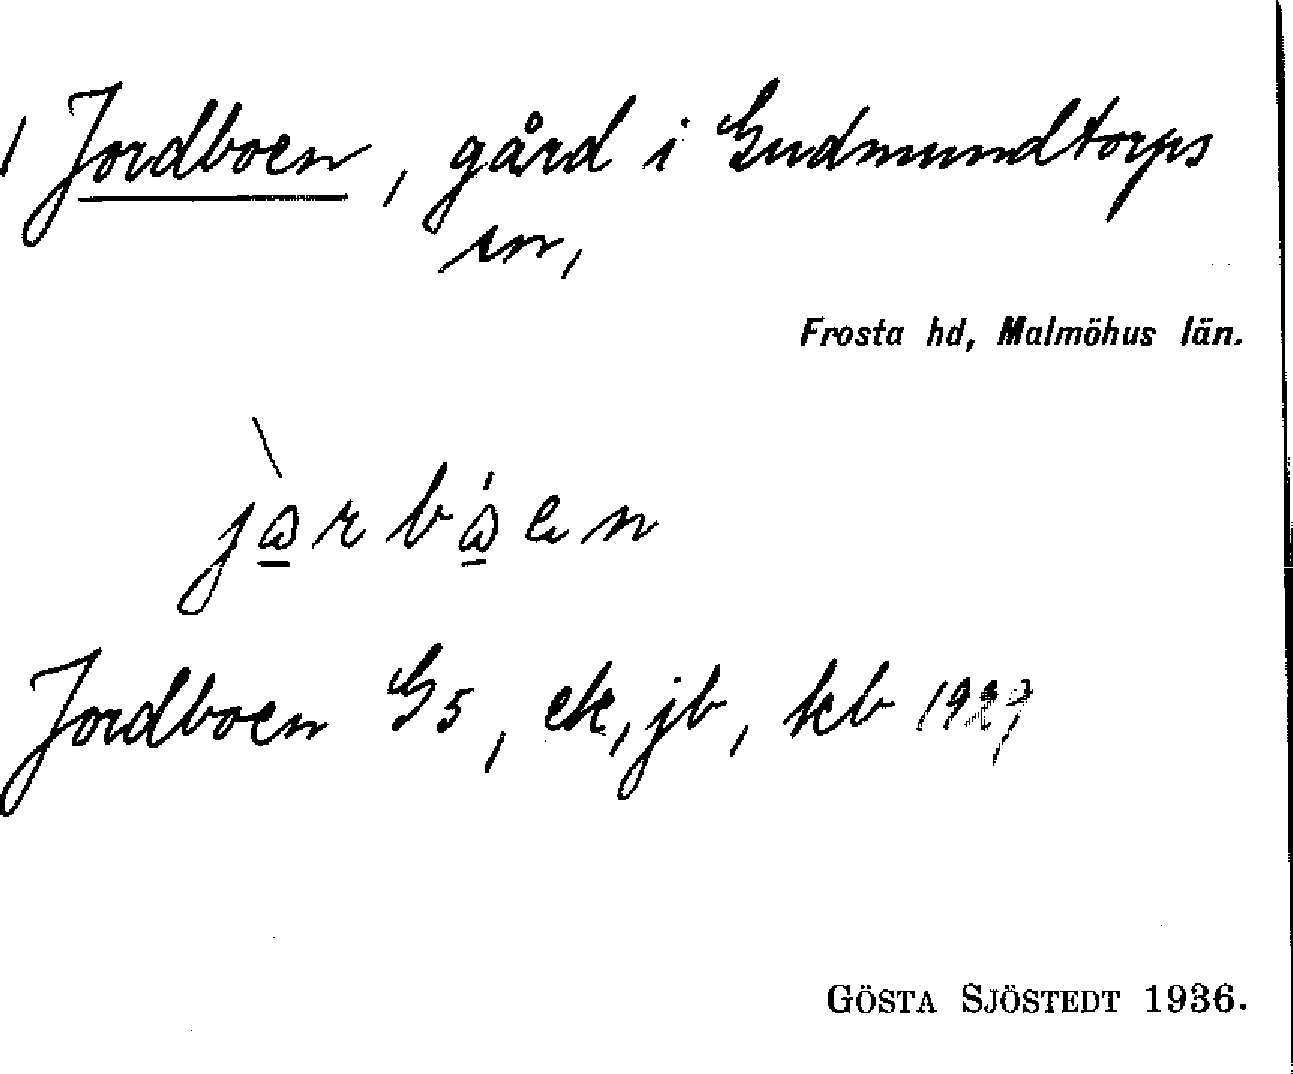 Jordboen, gård i Gudmundtorps
sn,
Frosta hd, Malmöhus län.
Jordboen G5, ek, jb, kb 1927
GÖSTA SJÖSTEDT 1936.